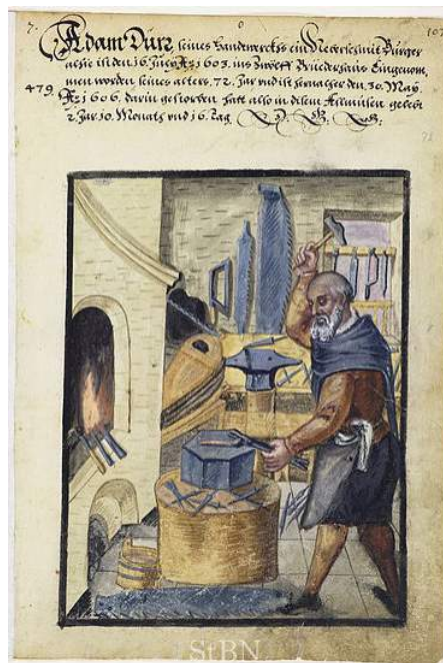 7.
107
Adam Dürr seines Handwercks ein Neberschmit Burger
alhie ist den 16. July Aº 1603. ins Zwölff Brüederhaus Eingenom,
men worden seines alters. 72. Jar vnd ist hernacher den 30. May.
479.
Aº 1606. darin gestorben hatt also in disem Allmusen gelebt
2 Jar 10. Monath vnd 16. Tag
71
StBN